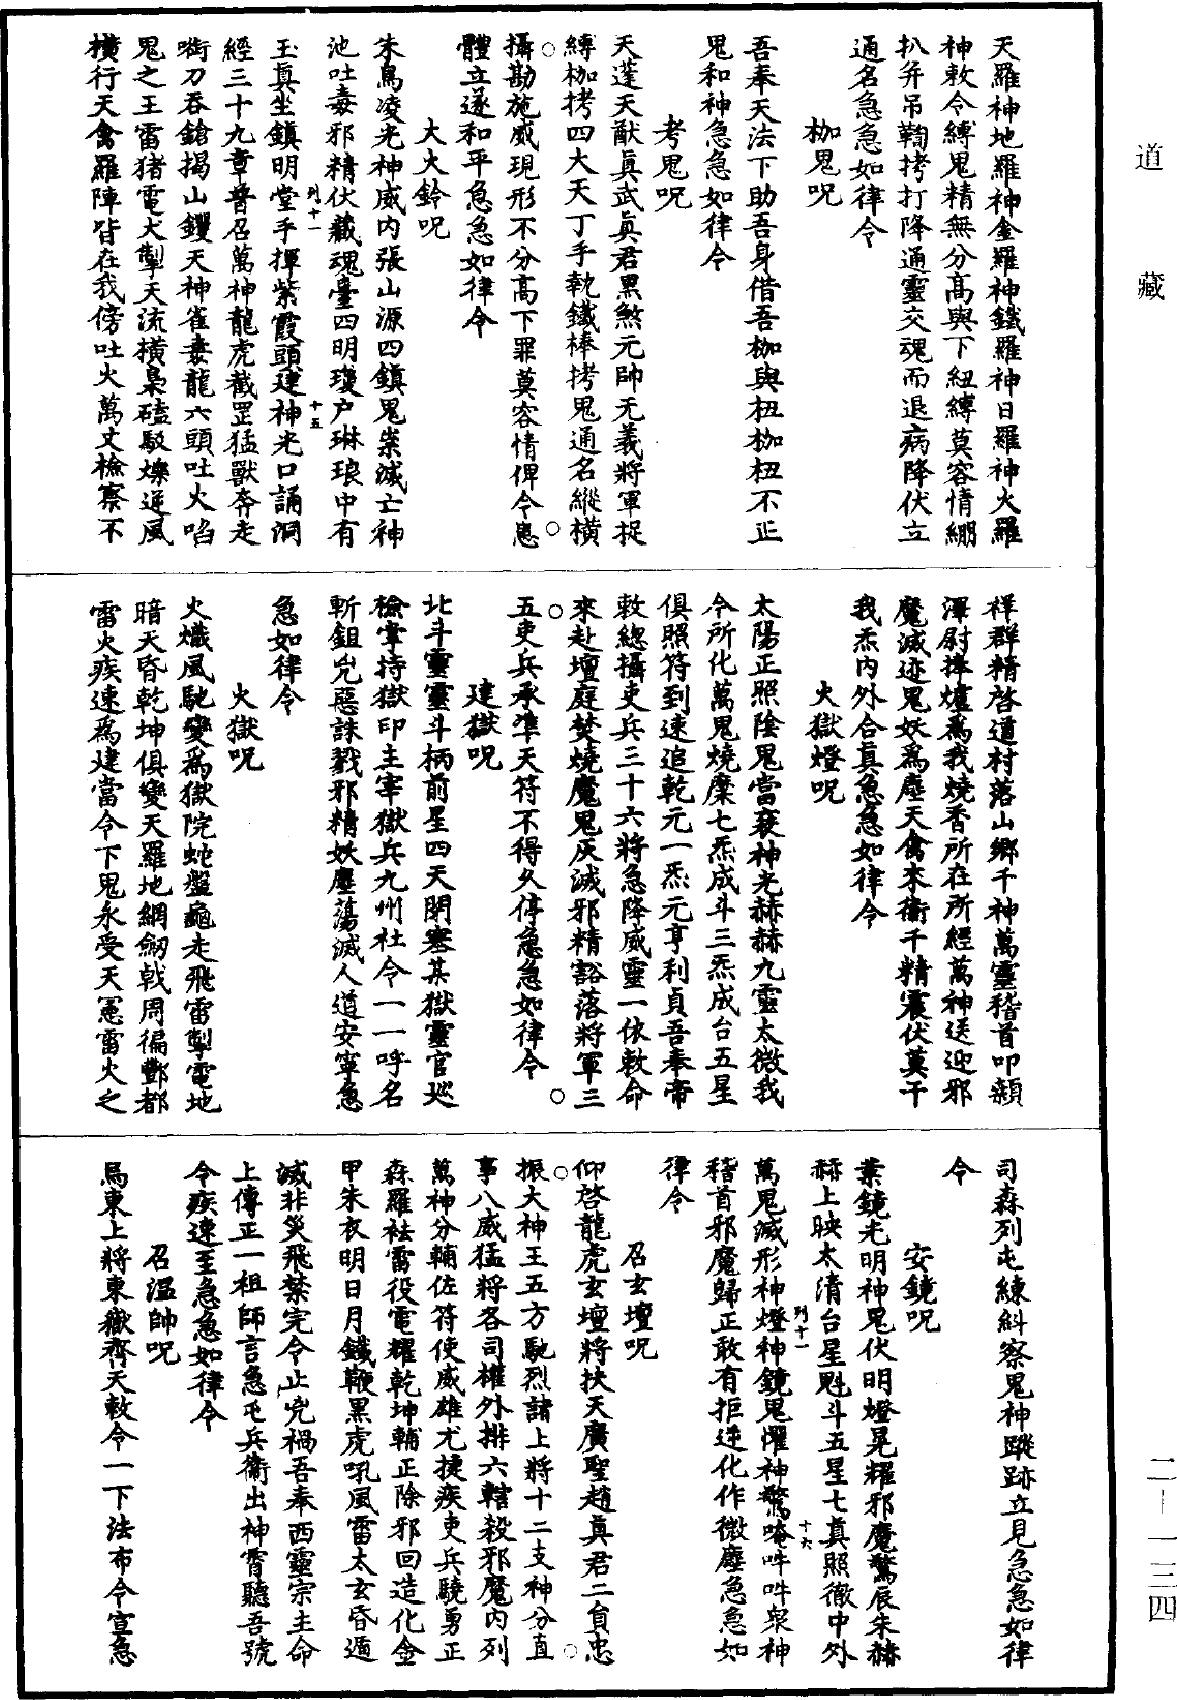 道藏
天羅神地羅神金羅神鐵羅神日羅神火羅
神敕令縛鬼精無分高與下紐縛莫容情綳
扒弁吊鞫拷打降通靈交魂而退病降伏立
通名急急如律令
枷鬼呪
吾奉天法下助吾身借吾枷與杻枷杻不正
鬼和神急急如律令
考鬼呪
天蓬天猷真武真君黑煞元帥无義將軍捉
縛枷拷四大天丁手執鐵棒拷鬼通名縱橫
攝勘施威現形不分高下罪莫容情俾令患
體立遂和平急急如律令
大火鈴呪
朱鳥凌光神威内張山源四鎮鬼祟滅亡神
池吐毒邪精伏藏魂臺四明瓊户琳琅中有
列十一
十五
玉真坐鎮明堂手揮紫霞頭建神光口誦洞
經三十九章普召萬神龍虎截罡猛獸奔走
啣刀吞鎗揭山钁天神雀毒龍六頭吐火啗
鬼之王雷猪電犬掣天流擴梟磕駁爍逆風
橫行天禽羅陣皆在我傍吐火萬丈檢察不
祥群精啓道村落山鄉千神萬靈稽首叩顙
澤尉捧爐爲我燒香所在所經萬神送迎邪
魔滅迹鬼妖爲塵天禽來衛千精震伏莫干
我炁内外合真急急如律令
火獄燈呪
太陽正照陰鬼當衰神光赫赫九靈太微我
今所化萬鬼燒糜七炁成斗三炁成台五星
俱照符到速追乾元一炁元亨利貞吾奉帝
敕總攝吏兵三十六將急降威靈一依敕命
來赴壇庭焚燒魔鬼灰滅邪精豁落將軍三
五吏兵承準天符不得久停急急如律令
建獄呪
北斗靈靈斗柄前星四天閉塞某獄靈官巡
檢掌持獄印主宰獄兵九州社令一一呼名
斬鉏兇惡誅戮邪精妖塵蕩滅人道安寧急
急如律令
火獄呪
火熾風馳變爲獄院蛇盤龜走飛雷掣電地
暗天昏乾坤俱變天羅地網劒戟周徧酆都
雷火疾速爲建當令下鬼永受天憲雷火之
司森列屯練糾察鬼神蹤跡立見急急如律
令
安鏡呪
業鏡光明神鬼伏明燈晃耀邪魔驚辰朱赫
赫上映太清台星魁斗五星七真照徹中外
列十一
十六
萬鬼滅形神燈神鏡鬼懼神驚唵吽吽衆神
稽首邪魔歸正敢有拒逆化作微塵急急如
律令
召玄壇呪
仰啓龍虎玄壇將扶天廣聖趙真君二負忠
振大神王五方馳烈諸上將十二支神分直
事八威猛將各司權外排六轄殺邪魔内列
萬神分輔佐符使威雄尤捷疾吏兵驍勇正
森羅袪雷役電耀乾坤輔正除邪回造化金
甲朱衣明日月鐵鞭黑虎吼風雷太玄昏遁
滅非災飛禁完令止兇禍吾奉西靈宗主命
上傳正一祖師言急屯兵衛出神霄聽吾號
令疾速至急急如律令
召温帥呪
爲東上將東嶽齊天敕令一下法布令宣急
二一一三四